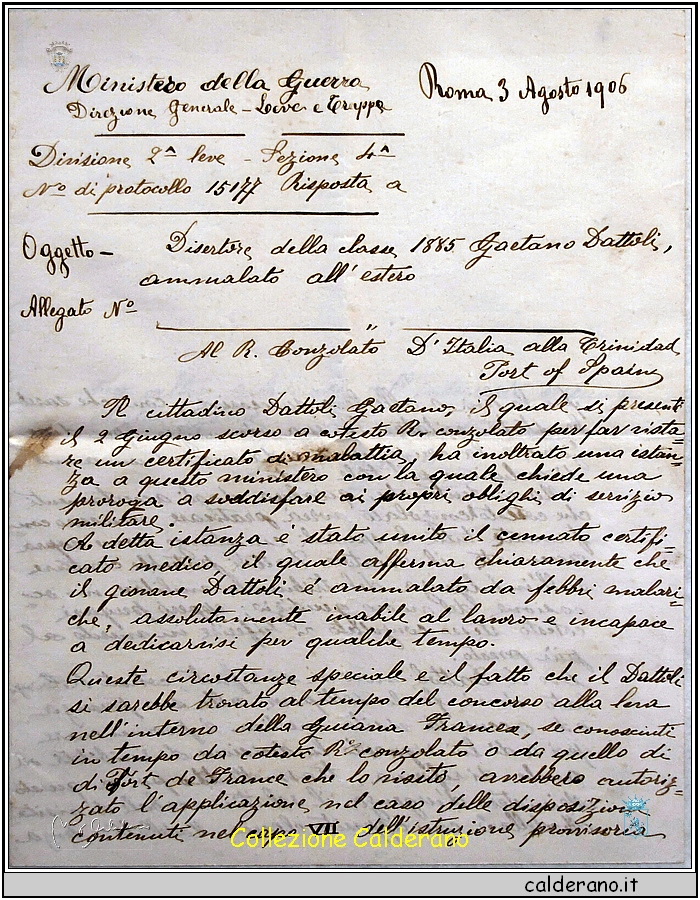 Ministero della Guerra
Direzione Generale - Leve e Truppa
Roma 3 Agosto 1906
Divisione 2ª leve - Sezione 4ª
Nº di protocollo 15177 Risposta a
Oggetto - Disertore della classe 1885 Gaetano Dattoli,
ammalato all'estero
Allegato Nº
"
Al R. Conzolato D'Italia alla Trinidad
Port of Spain
Il cittadino Dattoli Gaetano, il quale si presentò
il 2 Giugno scorso a cotesto R. conzolato per far vista-
re un certificato di malattia, ha inoltrato una istan-
za a questo ministero con la quale chiede una
proroga a soddisfare ai propri obblighi di servizio
militare.
A detta istanza é stato unito il cennato certifi-
cato medico, il quale afferma chiaramente che
il giovane Dattoli é ammalato da febbri malari-
che, assolutamente inabile al lavoro e incapace
a dedicarvisi per qualche tempo.
Queste circostanze speciale e il fatto che il Dattoli
si sarebbe trovato al tempo del concorso alla leva
nell'interno della Guiana Francese, se conosciuti
in tempo da cotesto R. conzolato o da quello di
di Fort de France che lo visitò, avrebbero autoriz-
zato l'applicazione nel caso delle disposizioni
contenute nel capo VII dell'istruzione provvisoria
Collezione Calderano
calderano.it